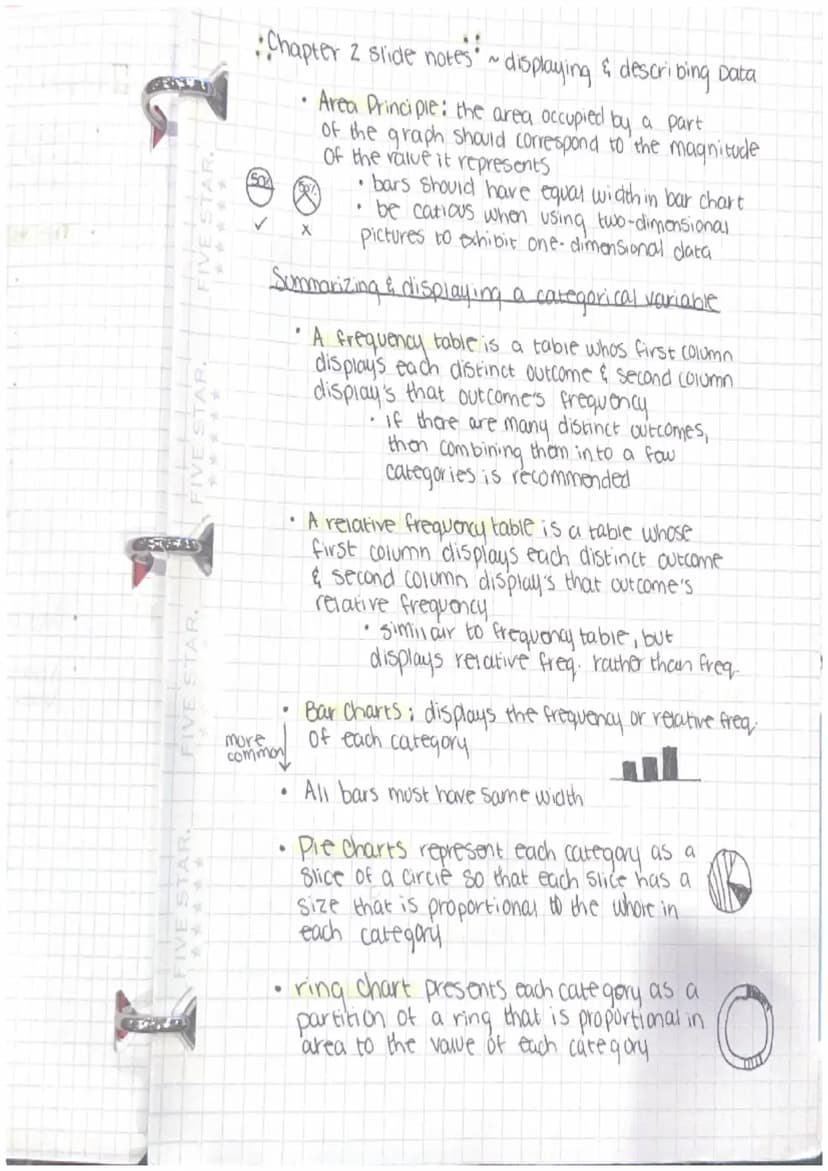 Chapter 2 slide notes ~ displaying & describing Data
• Area Principle: the area occupied by a part
of the graph should correspond to the magnitude
of the value it represents
50%
50%
✓
x
• bars should have equal width in bar chart
• be catious when using two-dimensional
pictures to exhibit one-dimensional data
Summarizing & displaying a categorical variable
• A frequency table is a table whos first column
displays each distinct outcome & second column
display's that outcome's frequency
• if there are many distinct outcomes,
then combining them into a few
categories is recommended
• A relative frequency table is a table whose
first column displays each distinct outcome
& second column display's that outcome's
relative frequency
• similair to frequency table, but
displays relative freq. rather than freq.
• Bar Charts: displays the frequency or relative freq.
of each category
more
common
• All bars must have same width
• Pie charts represent each category as a
slice of a circle so that each slice has a
size that is proportional to the whole in
each category
• ring chart presents each category as a
partition of a ring that is proportional in
area to the value of each category
FIVE STAR.
FIVE STAR.
FIVE STAR.
FIVE STAR.